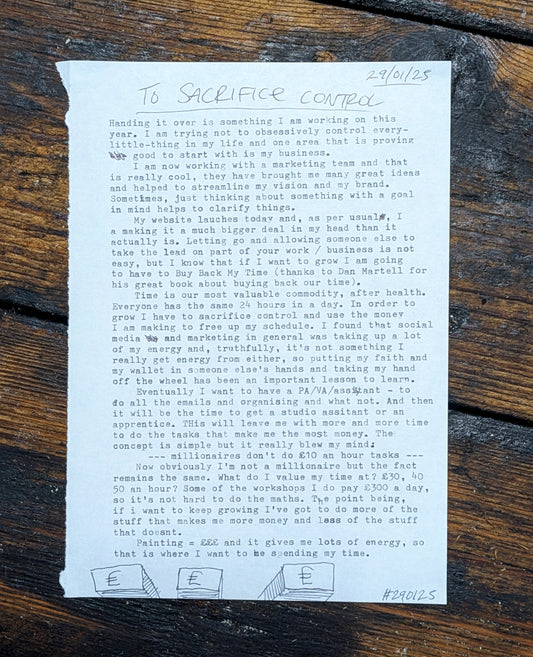 29/01/25
TO SACRIFICE CONTROL
Handing it over is something I am working on this
year. I am trying not to obsessively control every-
little-thing in my life and one area that is proving
good to start with is my business.
I am now working with a marketing team and that
is really cool, they have brought me many great ideas
and helped to streamline my vision and my brand.
Sometimes, just thinking about something with a goal
in mind helps to clarify things.
My website lauches today and, as per usual, I
a making it a much bigger deal in my head than it
actually is. Letting go and allowing someone else to
take the lead on part of your work / business is not
easy, but I know that if I want to grow I am going
to have to Buy Back My Time (thanks to Dan Martell for
his great book about buying back our time).
Time is our most valuable commodity, after health.
Everyone has the same 24 hours in a day. In order to
grow I have to sacrifice control and use the money
I am making to free up my schedule. I found that social
media and marketing in general was taking up a lot
of my energy and, truthfully, it's not something I
really get energy from either, so putting my faith and
my wallet in someone else's hands and taking my hand
off the wheel has been an important lesson to learn.
Eventually I want to have a PA/VA/assistant - to
do all the emails and organising and what not. And then
it will be the time to get a studio assitant or an
apprentice. THis will leave me with more and more time
to do the tasks that make me the most money. The
concept is simple but it really blew my mind:
--- millionaires don't do £10 an hour tasks ---
Now obviously I'm not a millionaire but the fact
remains the same. What do I value my time at? £30, 40
50 an hour? Some of the workshops I do pay £300 a day,
so it's not hard to do the maths. The point being,
if i want to keep growing I've got to do more of the
stuff that makes me more money and less of the stuff
that doesnt.
Painting = £££ and it gives me lots of energy, so
that is where I want to be spending my time.
£ £ £
#290125